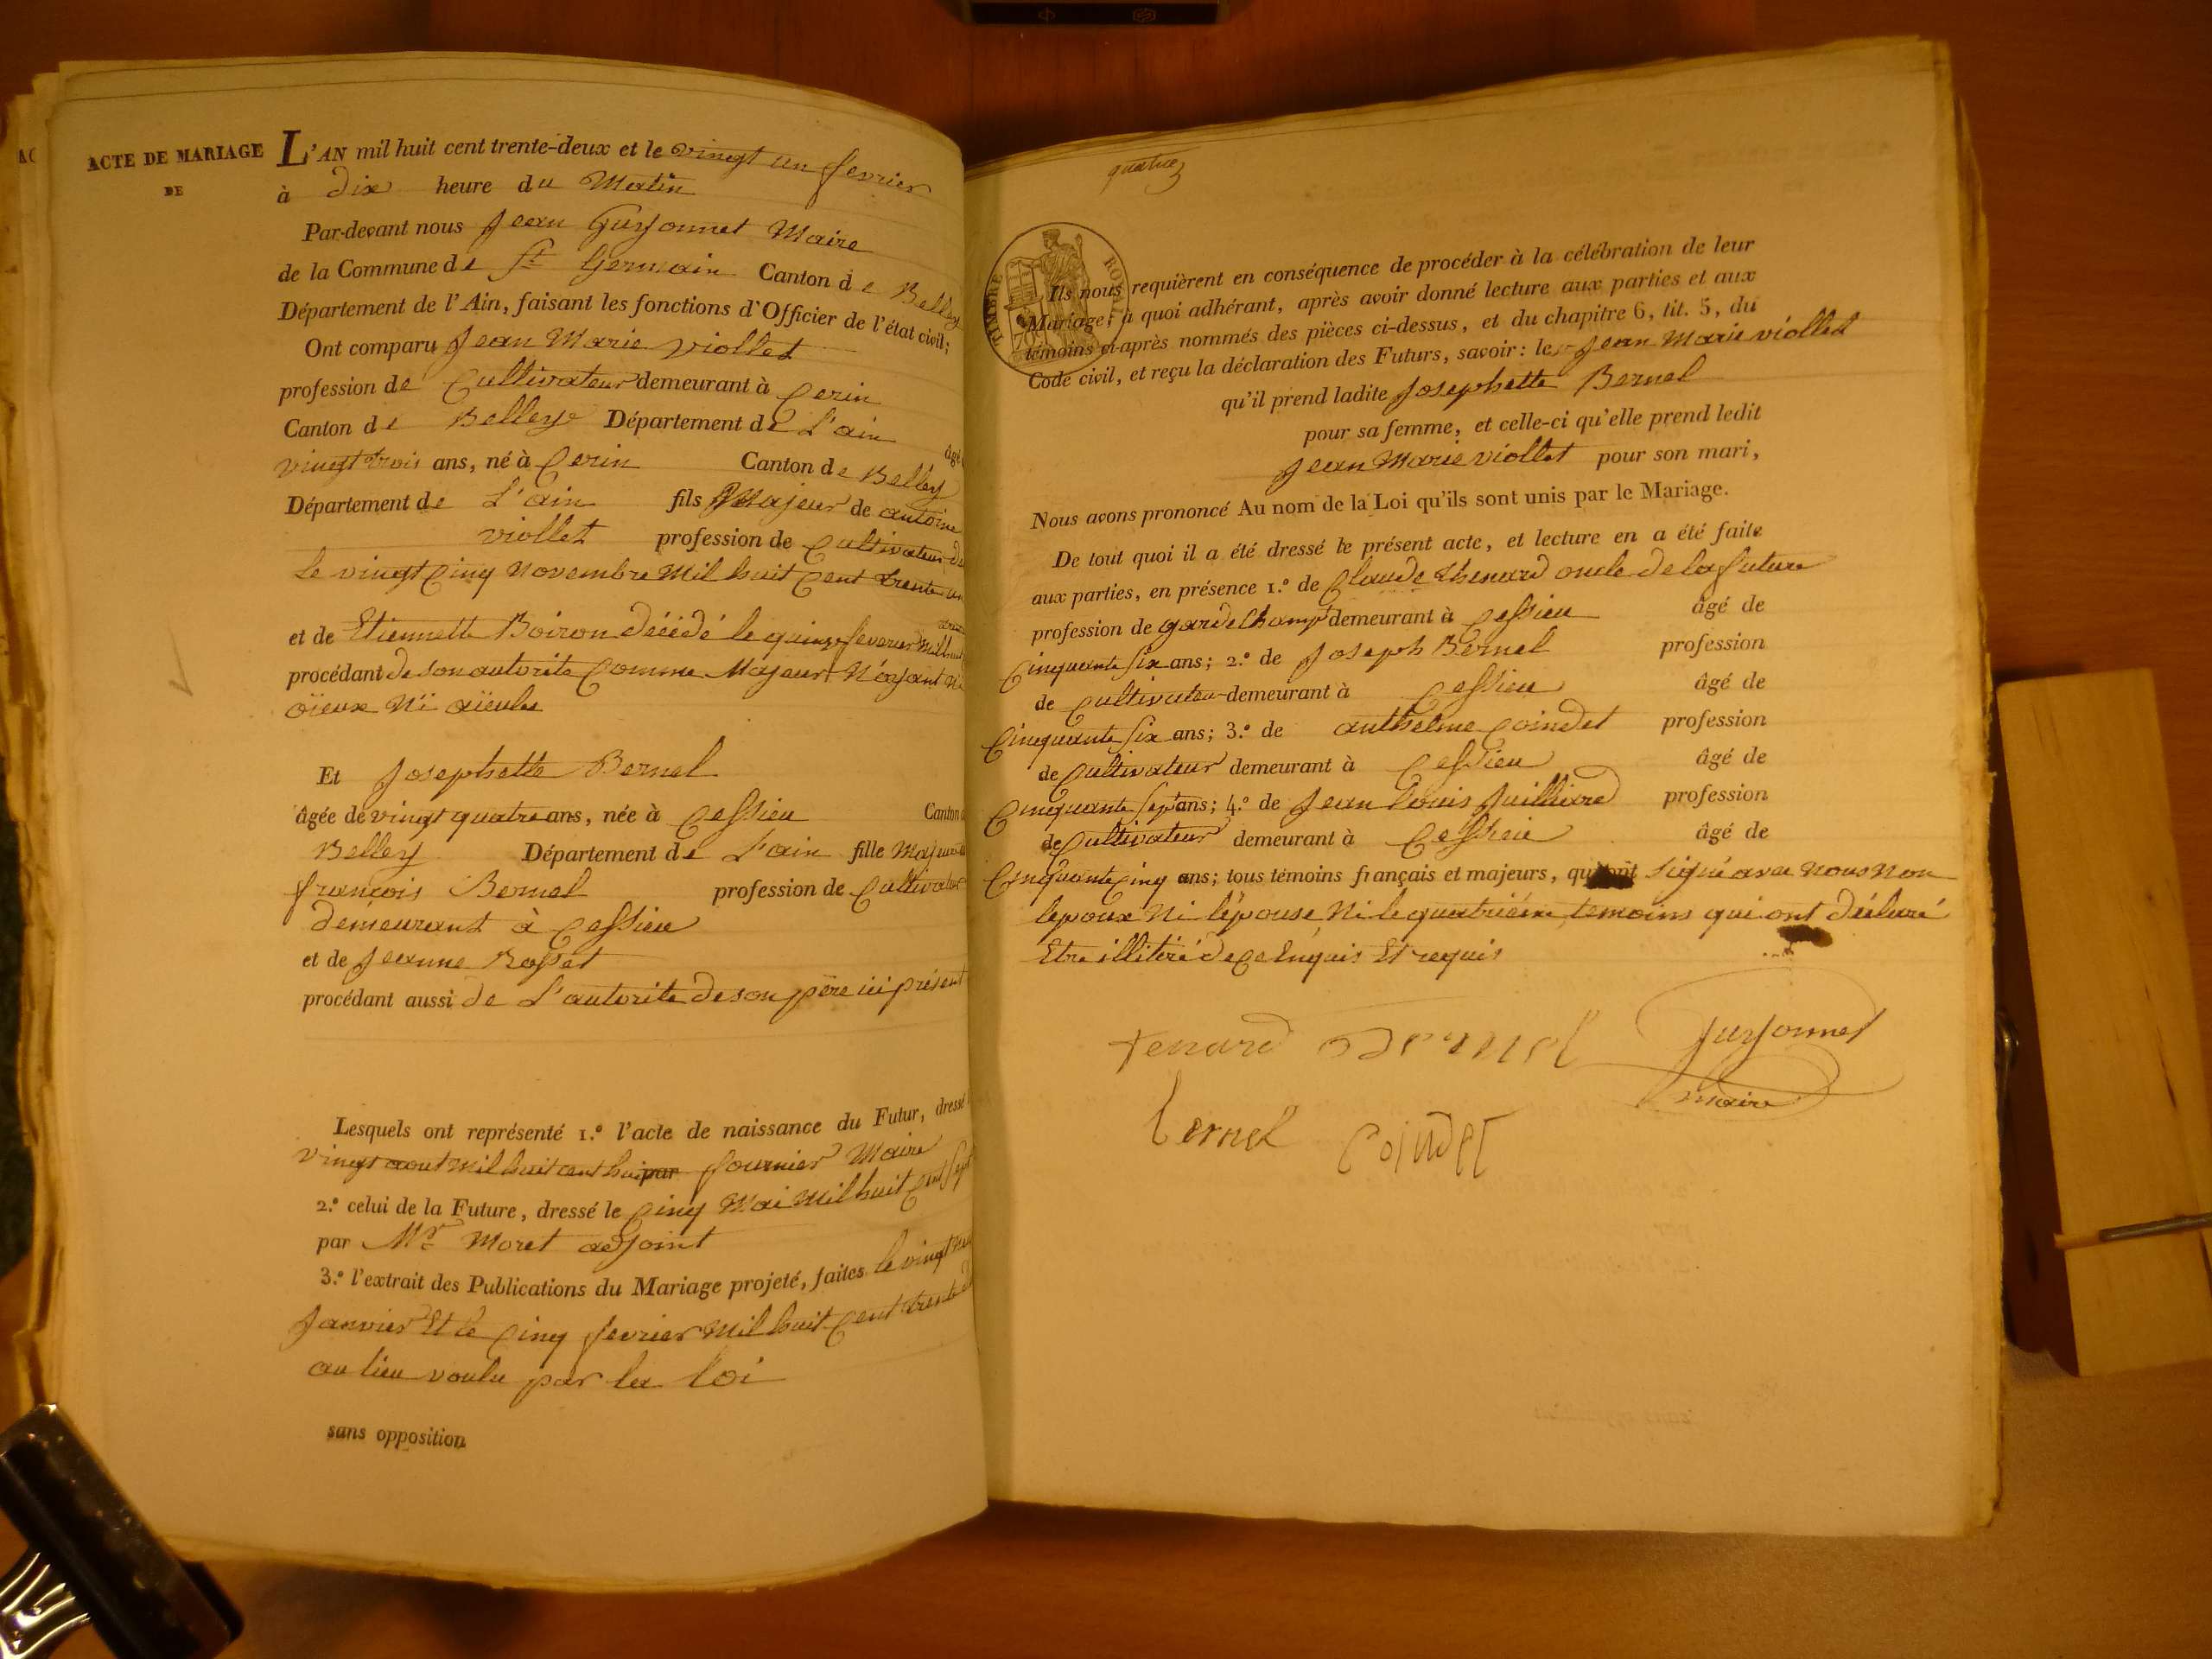 ACTE DE MARIAGE
DE
L'AN mil huit cent trente-deux et le vingt un fevrier
à dix heure du Matin
Par-devant nous Jean Guyonnet Maire
de la Commune de St Germain Canton de Belley
Département de l'Ain, faisant les fonctions d'Officier de l'état civil;
Ont comparu Jean Marie viollet
profession de Cultivateur demeurant à Cerin
Canton de Belley Département de L'ain
âgé
vingt trois ans, né à Cerin Canton de Belley
Département de L'ain fils Majeur de antoine
viollet profession de Cultivateur
le vingt Cinq Novembre Mil huit Cent trente un
et de Etiennette Boiron décédé le quinze feverier Mil huit
procédant de son autorite Comme Majeur N'ayant Ni
oïeux Ni aïeules
Et Josephette Bernel
âgée de vingt quatre ans, née à Cessieu Canton d
Belley Département de L'ain fille Majeure
françois Bernel profession de Cultivateur
demeurant à Cessieu
et de Jeanne Rosset
procédant aussi de L'autorite de son père ici présent
Lesquels ont représenté 1.º l'acte de naissance du Futur, dressé
vingt aout Mil huit cent huit par fournier Maire
2.º celui de la Future, dressé le Cinq Mai Mil huit Cent Sept
par Mr Moret adjoint
3.º l'extrait des Publications du Mariage projeté, faites le vingt neuf
Janvier Et le Cinq fevrier Mil huit Cent trente d
au lieu voulu par la loi
sans opposition
TIMBRE ROYAL
Ils nous requièrent en conséquence de procéder à la célébration de leur
Mariage; à quoi adhérant, après avoir donné lecture aux parties et aux
témoins ci-après nommés des pièces ci-dessus, et du chapitre 6, tit. 5, du
Code civil, et reçu la déclaration des Futurs, savoir: le Jean Marie viollet
qu'il prend ladite Josephette Bernel
pour sa femme, et celle-ci qu'elle prend ledit
Jean Marie viollet pour son mari,
Nous avons prononcé Au nom de la Loi qu'ils sont unis par le Mariage.
De tout quoi il a été dressé le présent acte, et lecture en a été faite
aux parties, en présence 1.º de Claude thenard oncle de la future
profession de garde Champ demeurant à Cessieu âgé de
Cinquante Six ans; 2.º de Joseph Bernel profession
de Cultivateur demeurant à Cessieu âgé de
Cinquante Six ans; 3.º de anthelme Coindet profession
de Cultivateur demeurant à Cessieu âgé de
Cinquante Sept ans; 4.º de Jean Louis Juilliard profession
de Cultivateur demeurant à Cessieu âgé de
Cinquante Cinq ans; tous témoins français et majeurs, qui ont Signé avec Nous Non
lepoux Ni lépouse, Ni le quatriéme temoins qui ont déclaré
Etre illitéré de Ce Enquis Et requis
tenard Bernel Guyonnet
maire
bernel Coindet